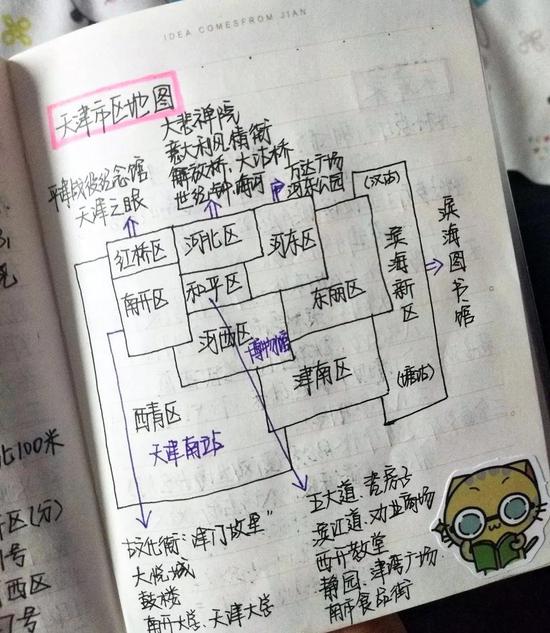 IDEA COMESFROM JIAN
天津市区地图
大悲禅院
意大利风情街
解放桥、大沽桥
世纪钟 海河
万达广场
河东公园
平津战役纪念馆
天津之眼
(汉沽)
红桥区
河北区
河东区
南开区
和平区
河西区
博物馆
东丽区
滨海新区
滨海图书馆
津南区
(塘沽)
西青区
天津南站
古文化街:"津门故里"
大悦城
鼓楼
南开大学、天津大学
五大道:瓷房子
滨江道:劝业商场
西开教堂
静园、津湾广场
南市食品街
100米
区(分)
号
西区
号